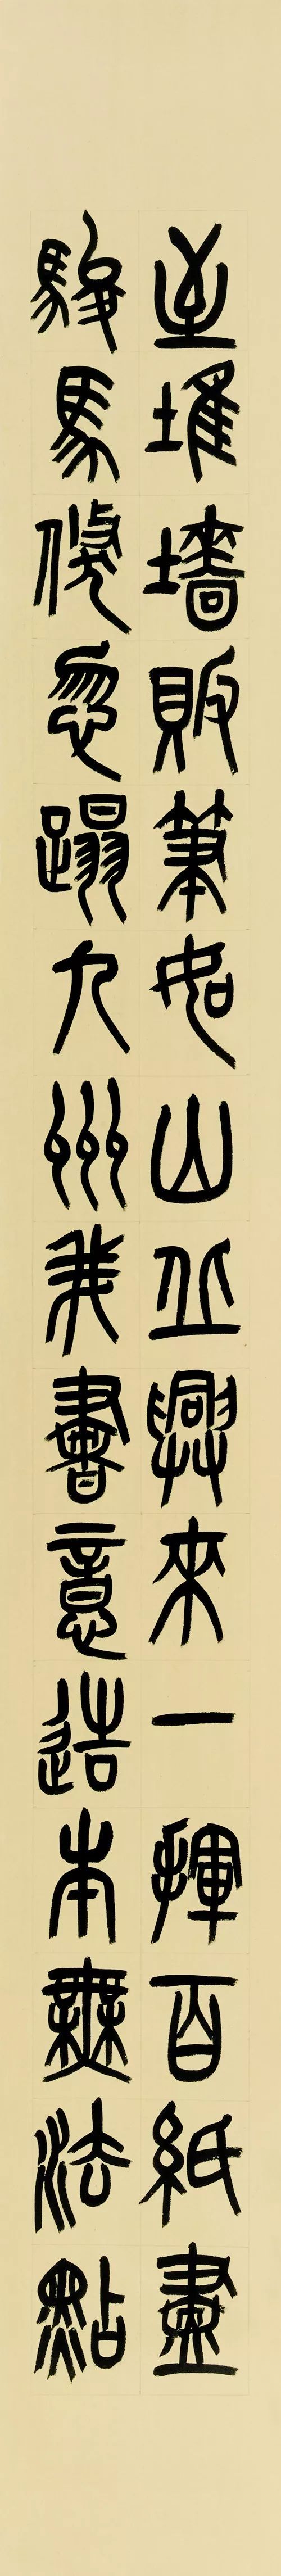 至堆墻敗筆如山丘興來一揮百紙盡
駿馬倏忽蹋九州我書意造本無法點